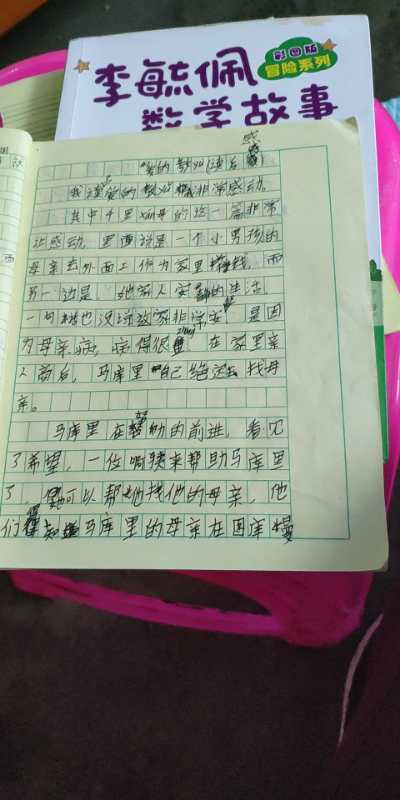 彩图版
冒险系列
李毓佩
数学故事
感
《爱的教育》读后
我读爱的教育 我非常感动。
其中千里xun母的这一篇非常
让感动。里面说是一个小男孩的
母亲去外面工作为家里挣钱，而
另一边是 她家人安 的生活。
一句话也没 故家非常安 是因
为母亲病，病得很 zhong 在家里亲
人商后，马库里 自己 去找母
亲。
马库里在努力的前进，看见
了希望，一位 来帮助马库里
了， 可以帮他找他的母亲，他
们得知 马库里的母亲在因库